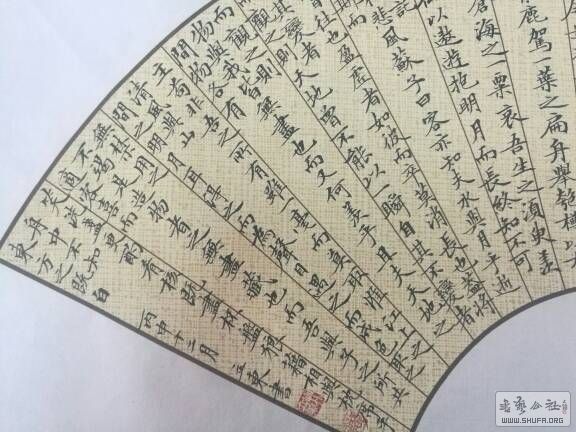 鹿駕一葉之扁舟舉匏樽以
滄海之一粟哀吾生之須臾羨
以遨遊抱明月而長終知不可
託
悲風蘇子曰客亦知夫水與月乎逝
往也盈虛者如彼而卒莫消長也蓋將
其變者
則天地曾不能以一瞬自其不變者
而觀之則
物與我皆無盡也而又何羨乎且夫天地之
間物各有
主苟非吾之所有雖一毫而莫取惟江上之
清風與山
間之明月耳得之而為聲目遇之而成色取之
無禁用之
不竭是造物者之無盡藏也而吾與子之所共
適客喜而
洗盞更酌肴核既盡杯盤狼籍相與枕藉乎
舟中不知
東方之既白
丙申十二月
立東書
WWW.SHUFA.ORG